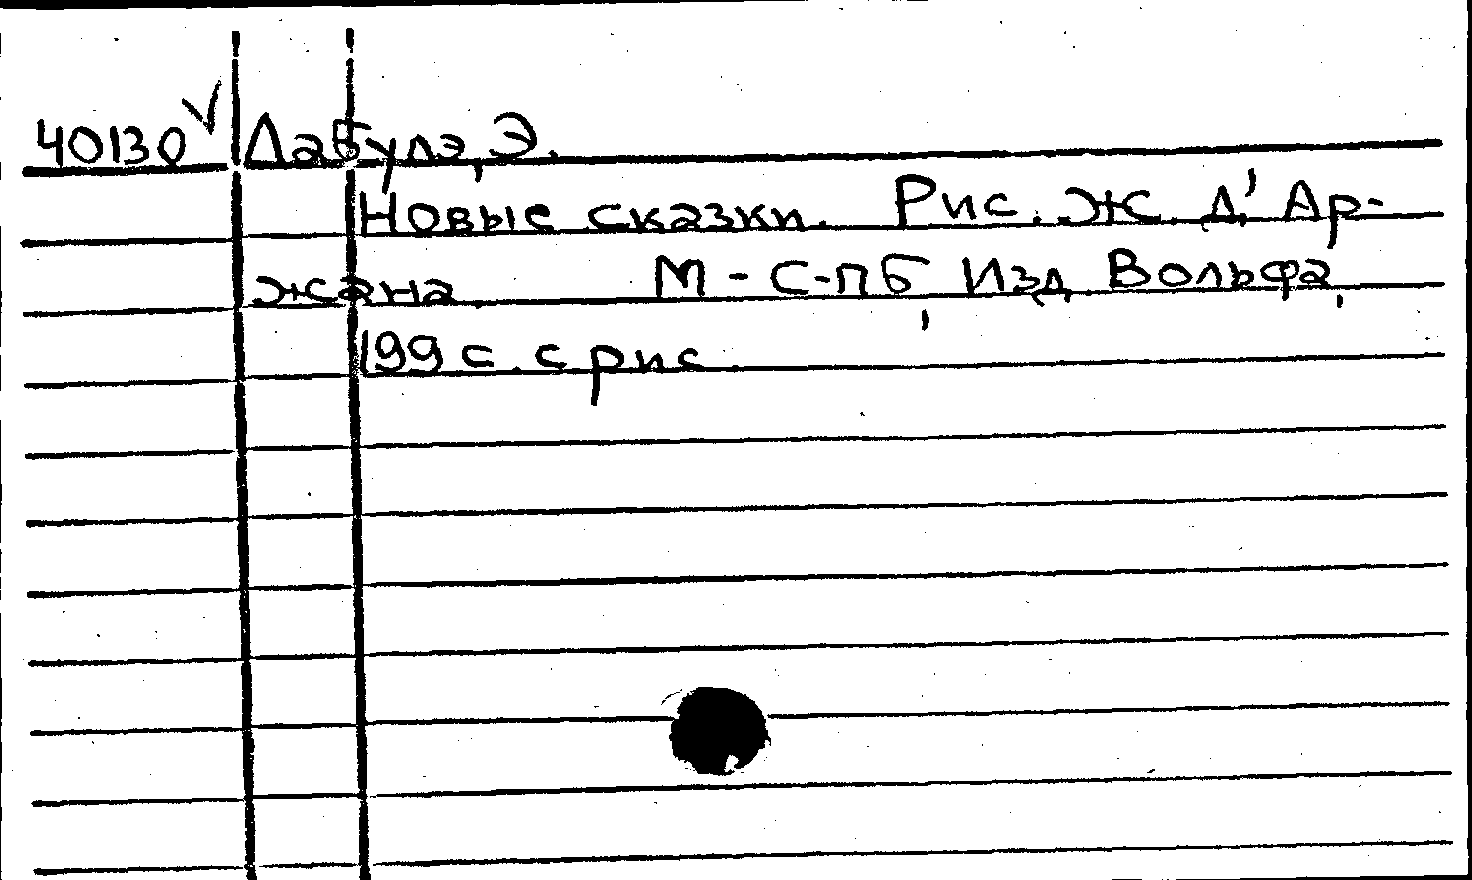 40130 ✓ Лабулэ, Э.
Новые сказки. Рис. Ж. Д'Ар-
жана. М-С-пб, Изд. Вольфа,
199 с. с рис.